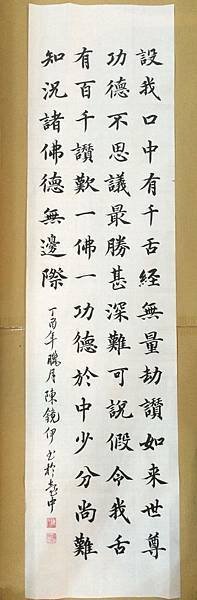 設我口中有千舌經無量劫讚如来世尊
功德不思議最勝甚深難可說假令我舌
有百千讚歎一佛一功德於中少分尚難
知況諸佛德無邊際
丁酉年臘月陳鏡伊書於臺中